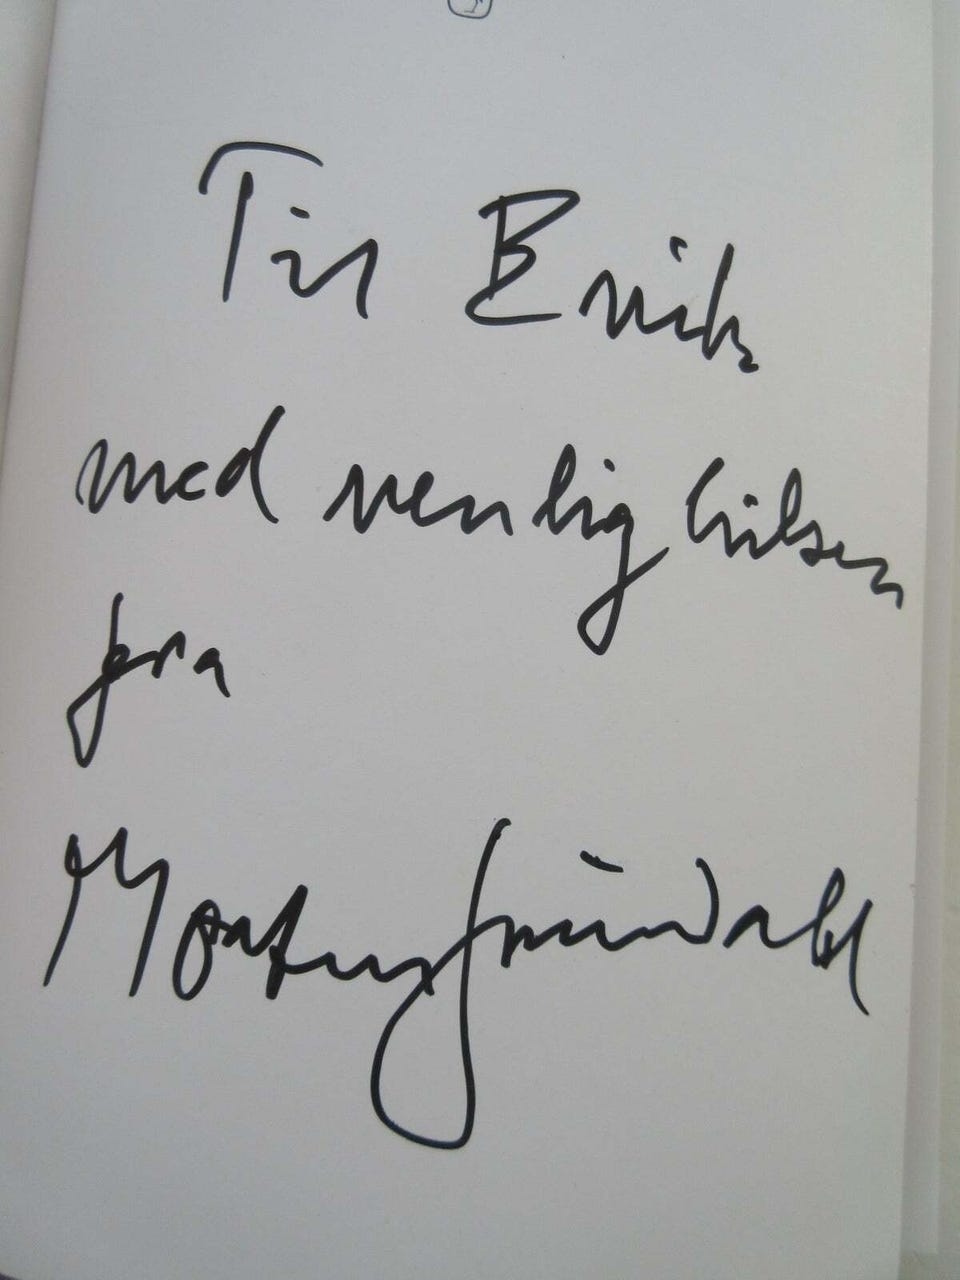 Til Erik
med venlig hilsen
fra
Morten Grünwald